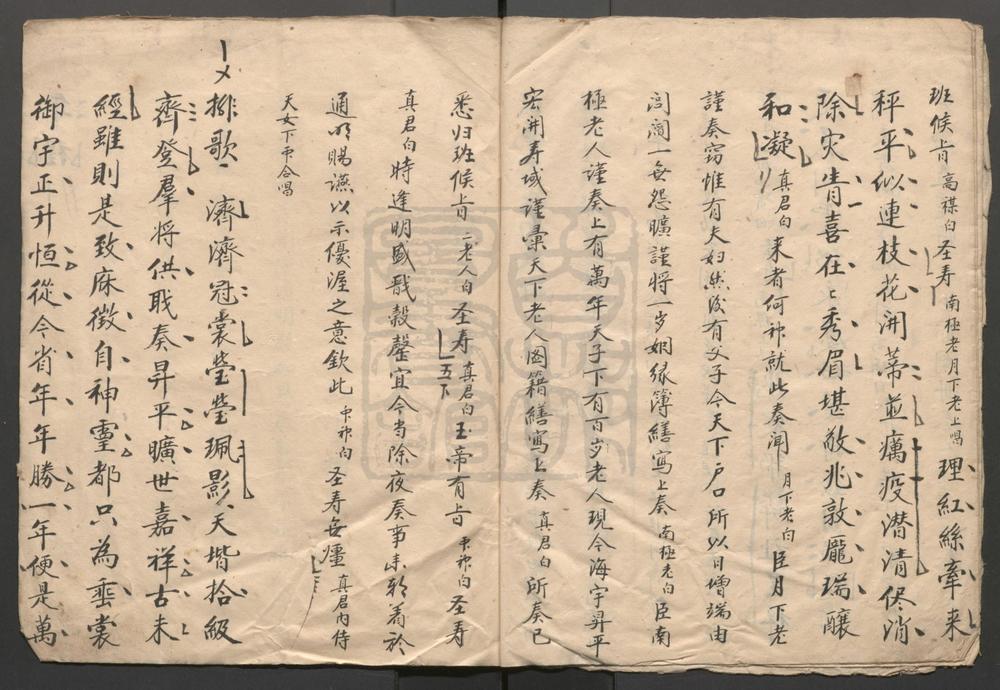 班侯上㫖 高禖白 圣寿 南極老月下老上唱 理紅絲牽来
秤平似連枝花開蒂並癘疫潜清侭消
除灾眚喜在〻秀眉堪敬兆敦龐瑞釀
和凝 真君白 来者何神就此奏闻 月下老白 臣月下老
謹奏窃惟有夫妇然後有父子今天下户口所以日增端由
闾閻一無怨曠謹将一岁姻缘簿繕寫上奏 南極老白 臣南
極老人謹奏上有萬年天子下有百岁老人現今海宇昇平
宏開寿域謹彙天下老人图籍繕寫上奏 真君白 所奏已
悉归班候㫖 二老人白 圣寿 五下 真君白 玉帝有㫖 众神白 圣寿
真君白 時逢明盛戬穀罄宜今当除夜奏事来朝着於
通明赐讌以示優渥之意欽此 众神白 圣寿無疆 真君内侍
天女下众合唱
排歌 濟濟冠裳瑩瑩珮影天堦拾級
齊登羣将供職奏昇平曠世嘉祥古未
經雖則是致庥徵自神靈都只為垂裳
御宇正升恒從今省年年勝一年便是萬